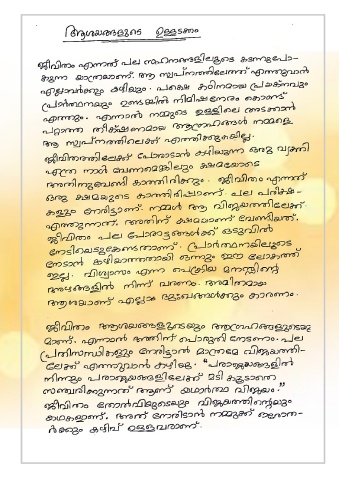 ആശയങ്ങളുടെ ഉള്ളടക്കം
ജീവിതം എന്നത് പല സഹനങ്ങളിലൂടെ കടന്നുപോ-
കുന്ന യാത്രയാണ്. ആ സ്വപ്നത്തിലേത്ത് എത്തുവാൻ
എല്ലാവർക്കും കഴിയും. പക്ഷെ കഠിനമായ പ്രയത്നവും
പ്രാർത്ഥനയും ഉണ്ടെങ്കിൽ നിമിഷനേരം കൊണ്ട്
എത്തും. എന്നാൽ നമ്മുടെ ഉള്ളിലെ അടക്കാൻ
പറ്റാത്ത തീക്ഷ്ണമായ ആഗ്രഹങ്ങൾ നമ്മളെ
ആ സ്വപ്നത്തിലെക്ക് എത്തിക്കുകയില്ല.
ജീവിതത്തിലേക്ക് പോവാടാൻ കഴിയുന്ന ഒരു വ്യക്തി
എത്ര നാൾ വേണമെങ്കിലും ക്ഷമയോടെ
അതിനുവേണ്ടി കാത്തിരിക്കും. ജീവിതം എന്നത്
ഒരു ക്ഷമയുടെ കാത്തിരിപ്പാണ്. പല പരീക്ഷ-
കളും നേരിട്ടാണ്. നമ്മൾ ആ വിജയത്തിലേക്ക്
എത്തുന്നത്. അതിന് ക്ഷമയാണ് വേണ്ടിയത്.
ജീവിതം പല പോരാട്ടങ്ങൾക്ക് ഒടുവിൽ
നേടിയെടുക്കേണ്ടതാണ്. പ്രാർത്ഥനയിലൂടെ
നേടാൻ കഴിയാത്തതായി ഒന്നും ഈ ലോകത്ത്
ഇല്ല. വിശ്വാസം എന്ന ചെറിയ മനസ്സിന്റെ
അഴങ്ങളിൽ നിന്ന് വരണം. അമിതമായ
ആശയാണ് എല്ലാം ദുഃഖങ്ങൾക്കും കാരണം.
ജീവിതം ആശയങ്ങളുടെയും ആഗ്രഹങ്ങളുടെയു
മാണ്. എന്നാൽ അത്തിന് പൊരുതി നേടണം. പല
പ്രതിസന്ധികളും നേരിട്ടാൻ മാത്രമേ വിജയത്തി-
ലേക്ക് എത്തുവാൻ കഴിയൂ. "പരാജയങ്ങളിൽ
നിന്നും പരാജയങ്ങളിലേക്ക് മടി കൂടാതെ
സഞ്ചരിക്കുന്നത് ആണ് യഥാർത്ഥ വിജയം."
ജീവിതം തോൽവിയുടെയും വിജയത്തിന്റെയും
കഥകളാണ്. അത് നേരിടാൻ നമുക്ക് ഓരോത-
ർക്കും കഴിവ് ഉള്ളവരാണ്.